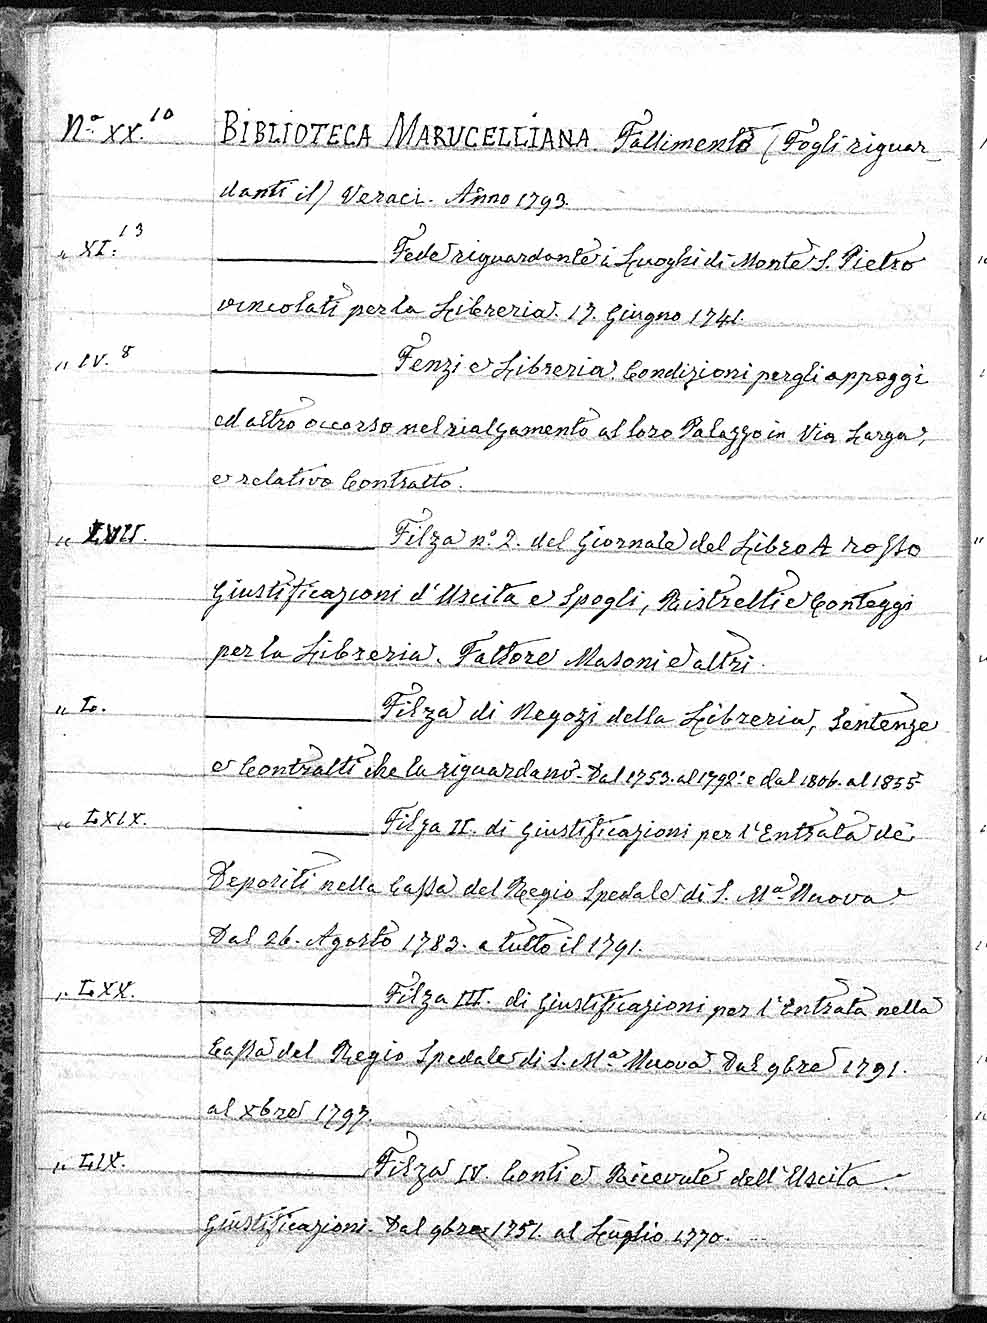 N.º XX.10 BIBLIOTECA MARUCELLIANA. Fallimento (Fogli riguar-
danti il) Veraci. Anno 1793.
„ XI.13 Fede riguardante i Luoghi di Monte S. Pietro
vincolati per la Libreria. 17. Giugno 1741.
„ IV.8 Fenzi e Libreria. Condizioni per gli appoggi
ed altro occorso nel rialzamento al loro Palazzo in Via Larga,
e relativo Contratto.
„ LVII. Filza n.º 2. del Giornale del Libro A rosso
Giustificazioni d'Uscita e Spogli, Ristretti e Conteggi
per la Libreria. Fattore Masoni e altri.
„ L. Filza di Negozi della Libreria, Sentenze
e Contratti che la riguardano. Dal 1753. al 1792. e dal 1806. al 1855.
„ LXIX. Filza II. di Giustificazioni per l'Entrata de'
Depositi nella Cassa del Regio Spedale di S. Mª. Nuova
Dal 26. Agosto 1783. a tutto il 1791.
„ LXX. Filza III. di Giustificazioni per l'Entrata nella
Cassa del Regio Spedale di S. Mª Nuova. Dal 9bre 1791.
al Xbre 1797.
„ LIX. Filza IV. Conti e Ricevute dell'Uscita.
Giustificazioni. Dal 9bre 1751. al Luglio 1770.